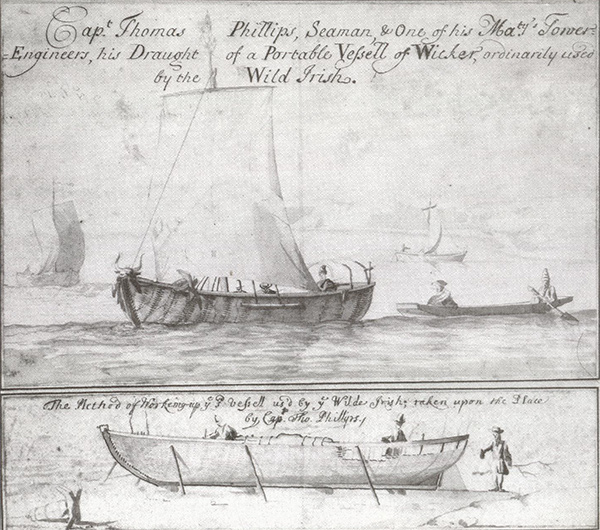 Capt Thomas Phillips, Seaman, & One of his Matys Tower=
=Engineers, his Draught of a Portable Vessell of Wicker, ordinarily used
by the Wild Irish.
The Method of Workeing up ye sd Vessell us'd by ye Wilde Irish; taken upon the Place
by Capt Tho. Phillips,